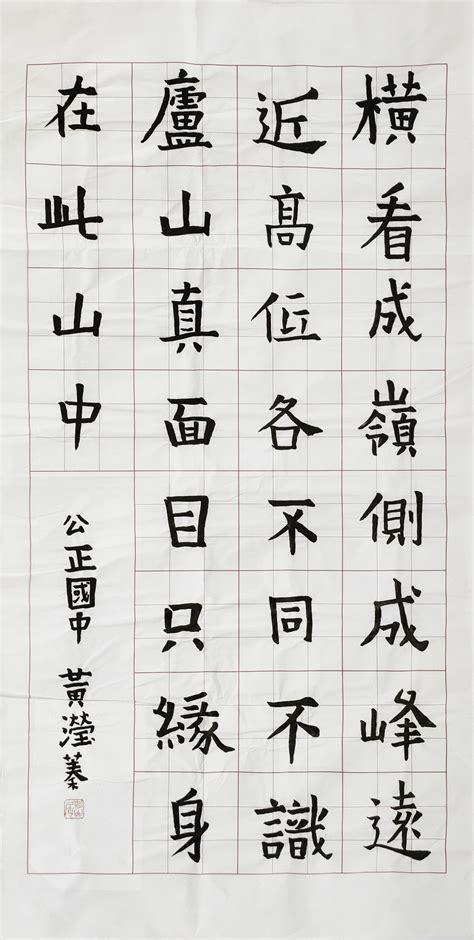 橫看成嶺側成峰遠
近高低各不同不識
廬山真面目只緣身
在此山中
公正國中 黃瀅蓁